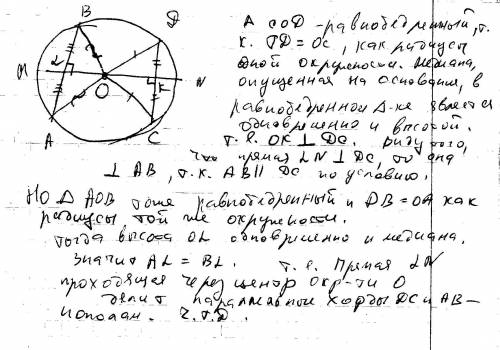 B
D
M
L
K
N
O
A
C
Δ COD - равнобедренный, т.
к. OD = OC, как радиусы
одной окружности. Медиана,
опущенная на основания, в
равнобедренном Δ-ке является
одновременно и высотой.
т. е. OK ⊥ DC. Ввиду того,
что прямая LN ⊥ DC, то она
⊥ AB, т.к. AB || DC по условию.
Но Δ AOB тоже равнобедренный и OB = OA как
радиусы той же окружности.
тогда высота OL одновременно и медиана.
значит AL = BL. т. е. Прямая LN
проходящая через центр окр-ти O
делит параллельные хорды DC и AB -
пополам. Ч.Т.Д.